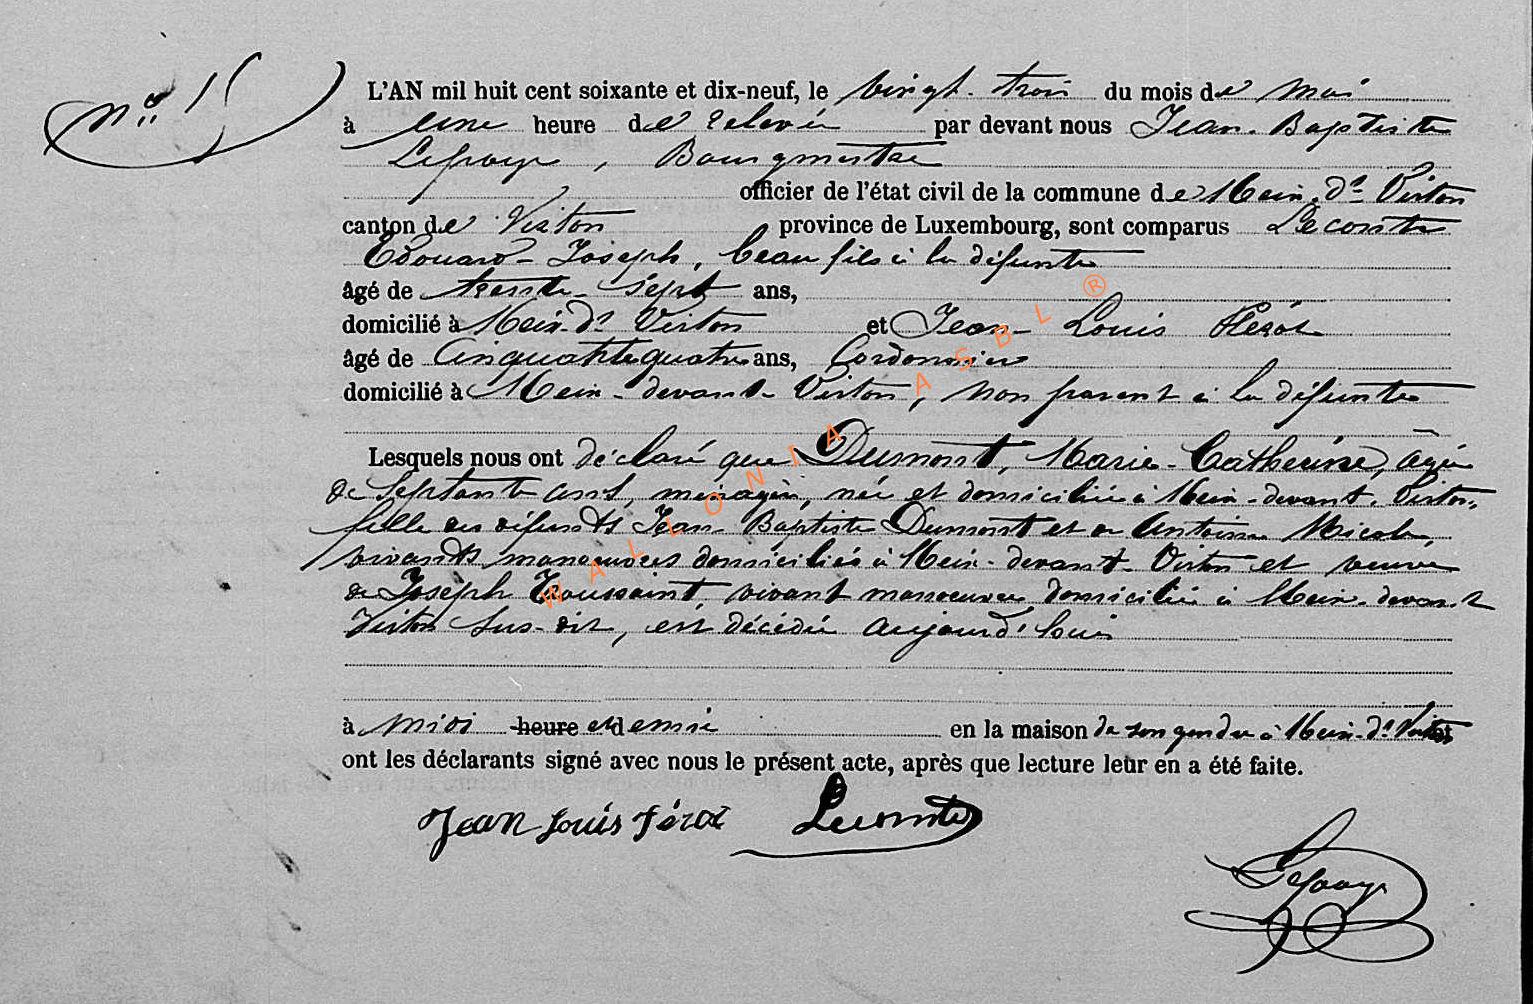 N° 15
L'AN mil huit cent soixante et dix-neuf, le vingt-trois du mois de Mai
à une heure de relevée par devant nous Jean-Baptiste
Lefouge, Bourgmestre
officier de l'état civil de la commune de Meix-dt Virton
canton de Virton province de Luxembourg, sont comparus Lecomte
Edouard-Joseph, beau fils à la défunte
âgé de trente-sept ans,
domicilié à Meix-dt Virton et Jean-Louis Férot
âgé de Cinquante quatre ans, Cordonnier
domicilié à Meix-devant-Virton, non parent à la défunte
Lesquels nous ont déclaré que Dumont, Marie-Catherine, agée
de Septante ans, ménagère, née et domiciliée à Meix-devant-Virton,
fille des défunts Jean-Baptiste Dumont et de Antoinne Nicolas,
vivants manoeuvres domiciliés à Meix-devant-Virton et veuve
de Joseph Toussaint, vivant manoeuvre domicilié à Meix-devant
Virton sus-dit, est décédée aujourd'hui
à midi heure et demie en la maison de son gendre à Meix-dt Virton
ont les déclarants signé avec nous le présent acte, après que lecture leur en a été faite.
Jean Louis Férot Lecomte
Lefouge
WALLONIA ASBL ®